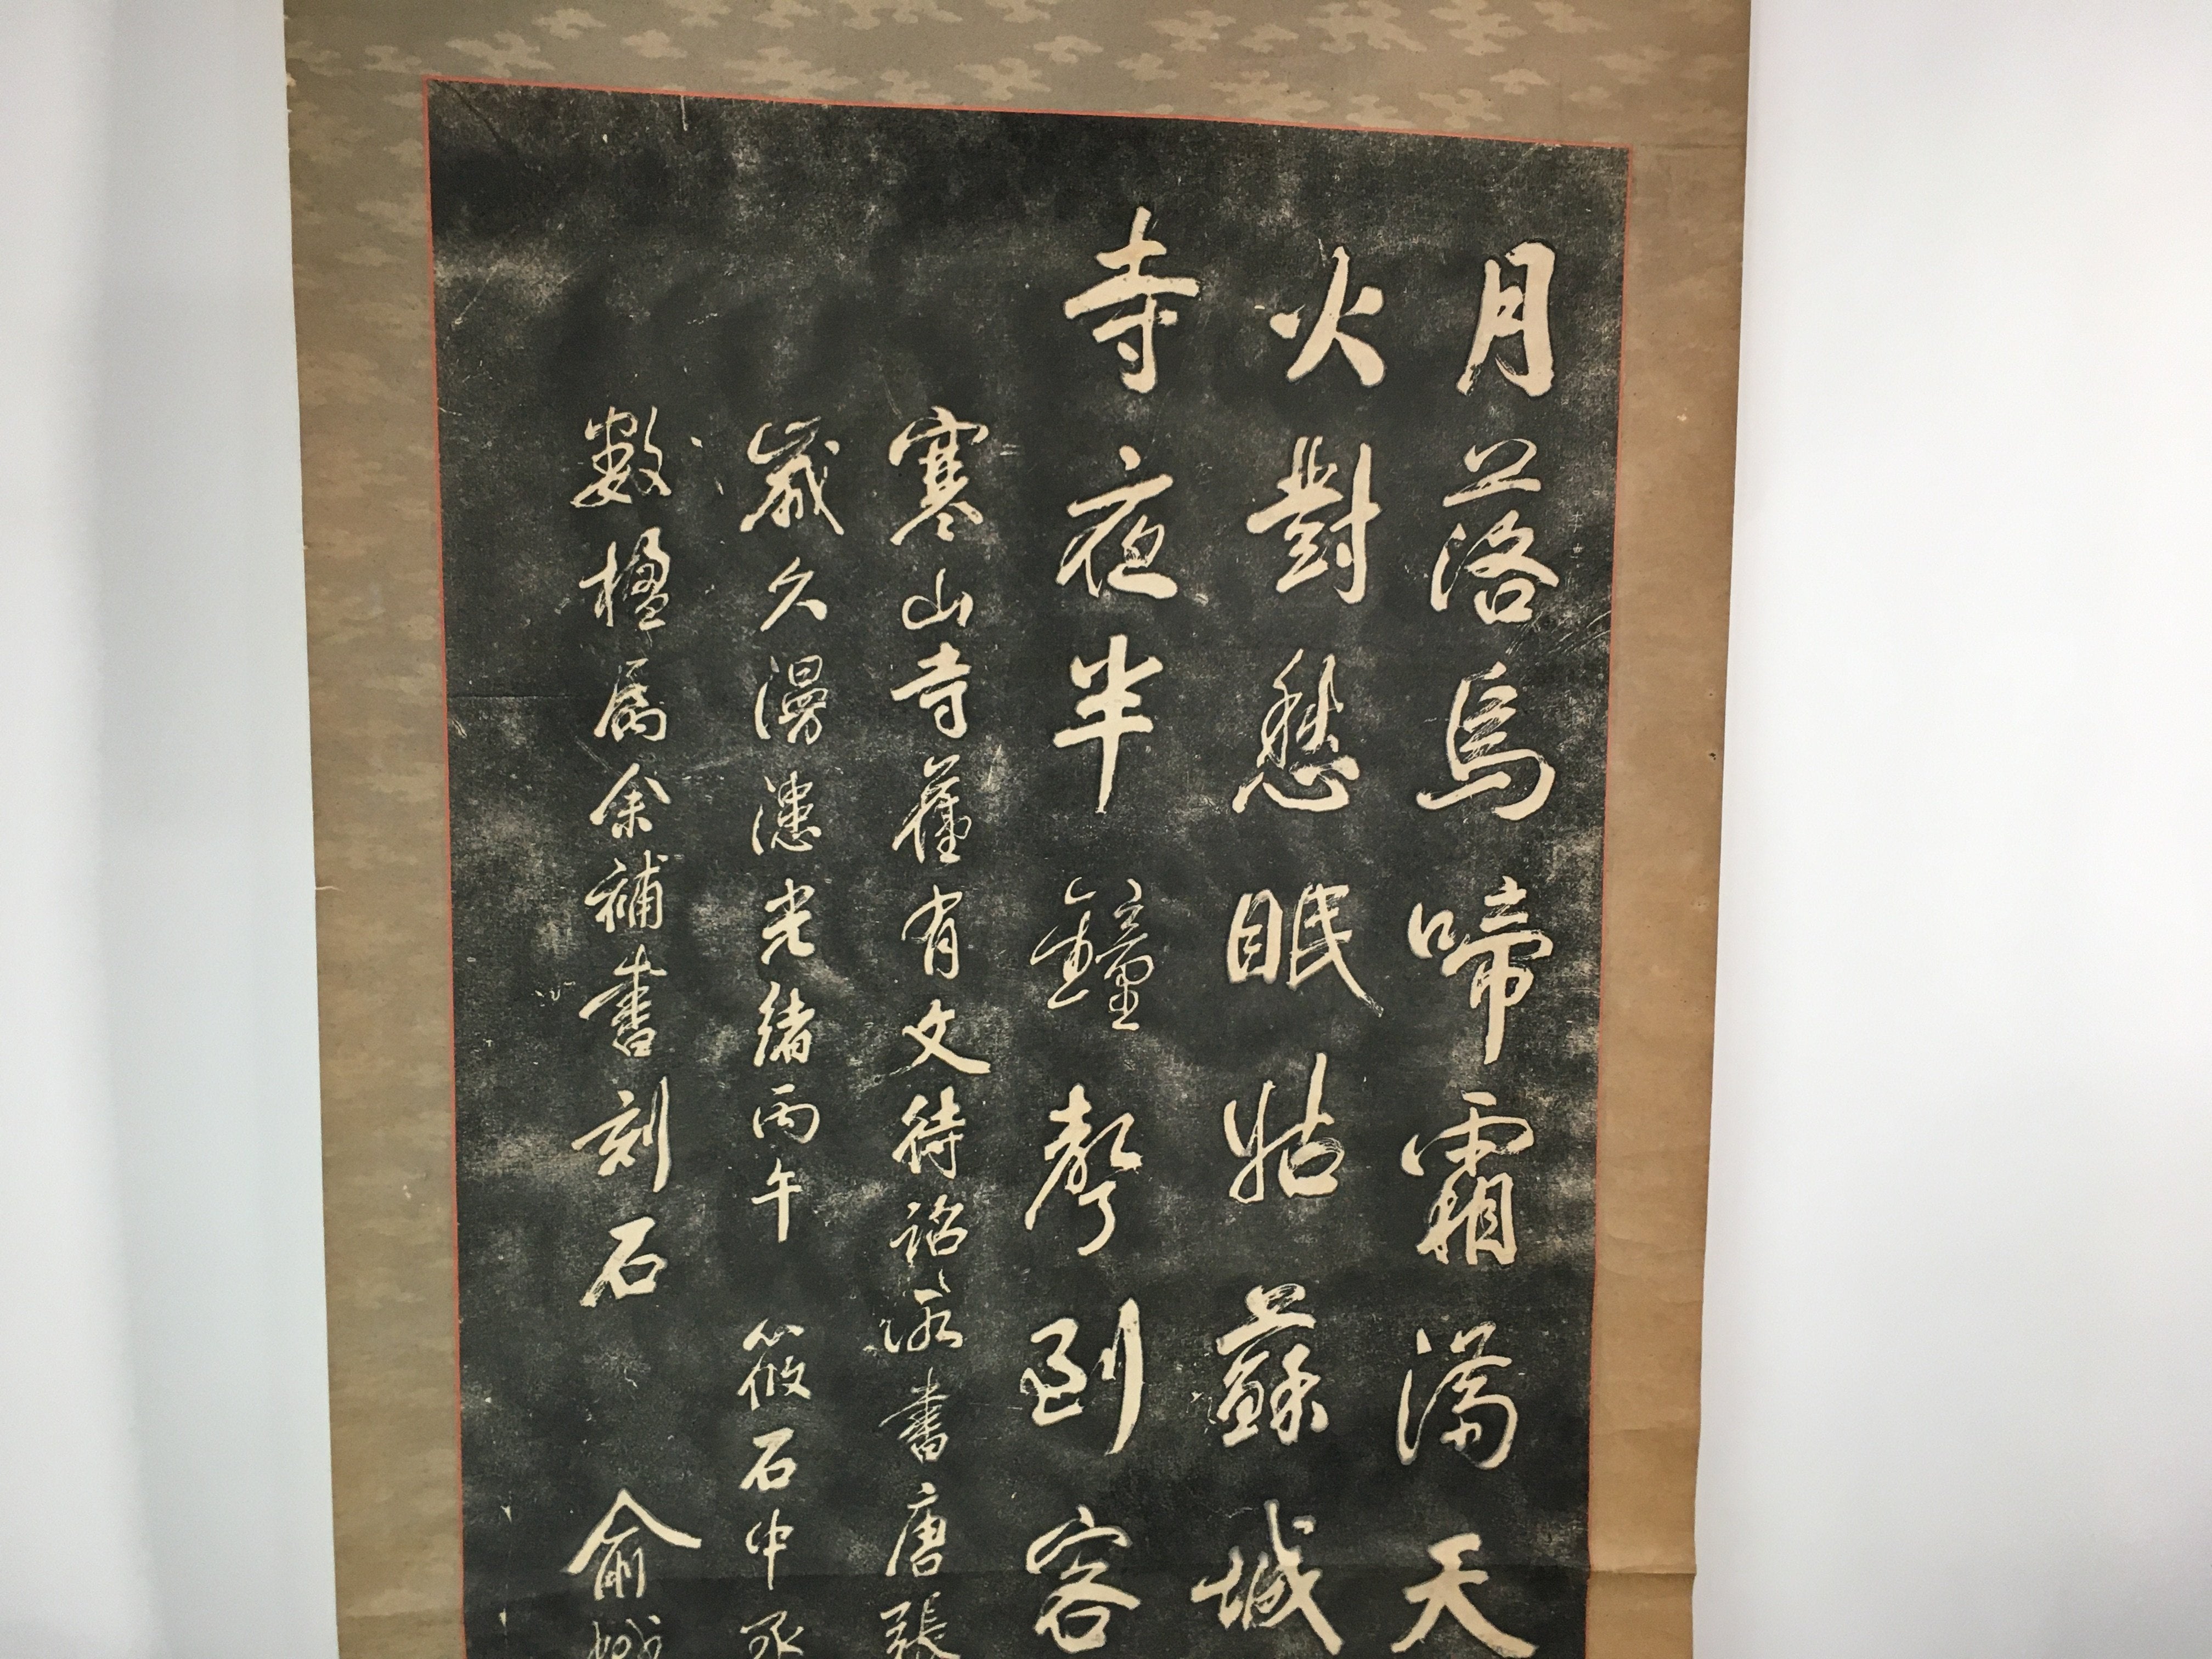 月落烏啼霜満天
火對愁眠姑蘇城
寺夜半鐘聲到客
寒山寺舊有文待詔所書唐張
歲久漫漶光緒丙午筱石中丞
數楹屬余補書刻石俞樾